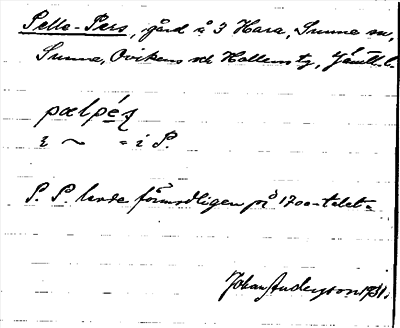 Pelle-Pers, gård i 3 Hara, Sunne sn,
Sunne, Ovikens och Hallens tg, Jämtl. l.
pælpéʂ
i ~ = i P.
P. P. levde förmodligen på 1700-talet.
Johan Anderson 1931.